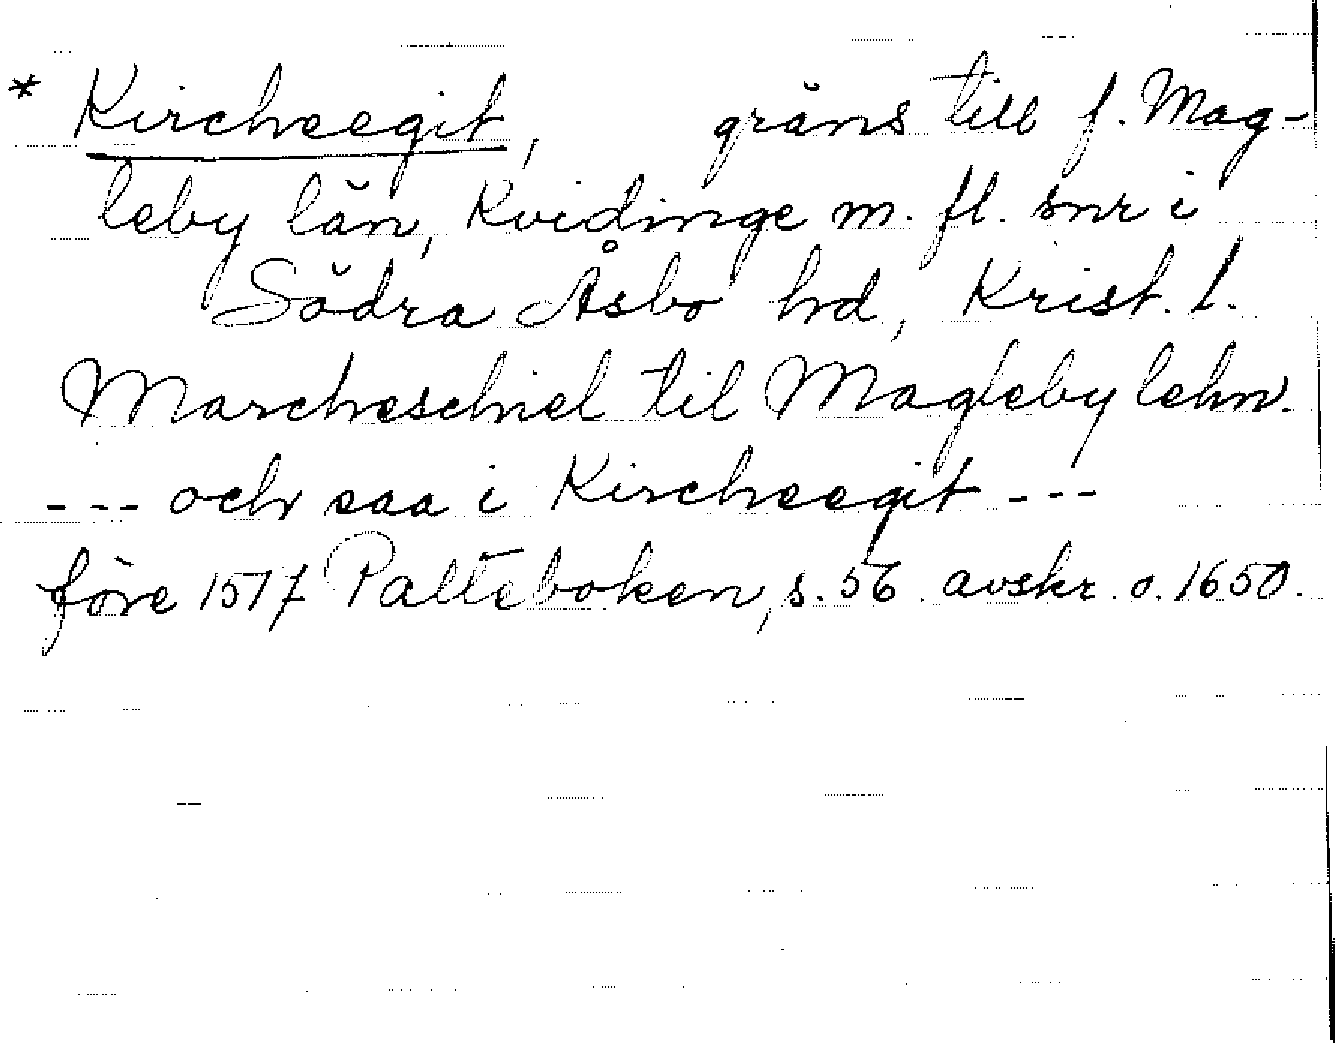 * Kircheegit, gräns till f. Mag-
leby län, Kvidinge m. fl. snr i
Södra Åsbo hd, Krist. l.
Marcheschiel til Magleby lehn.
--- och saa i Kircheegit ---
före 1517 Palteboken, s. 56 avskr. o. 1650.